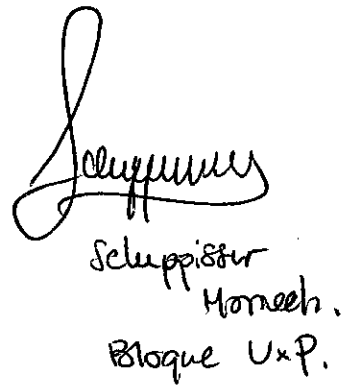 Schuppisser
Marneeh.
Bloque UxP.